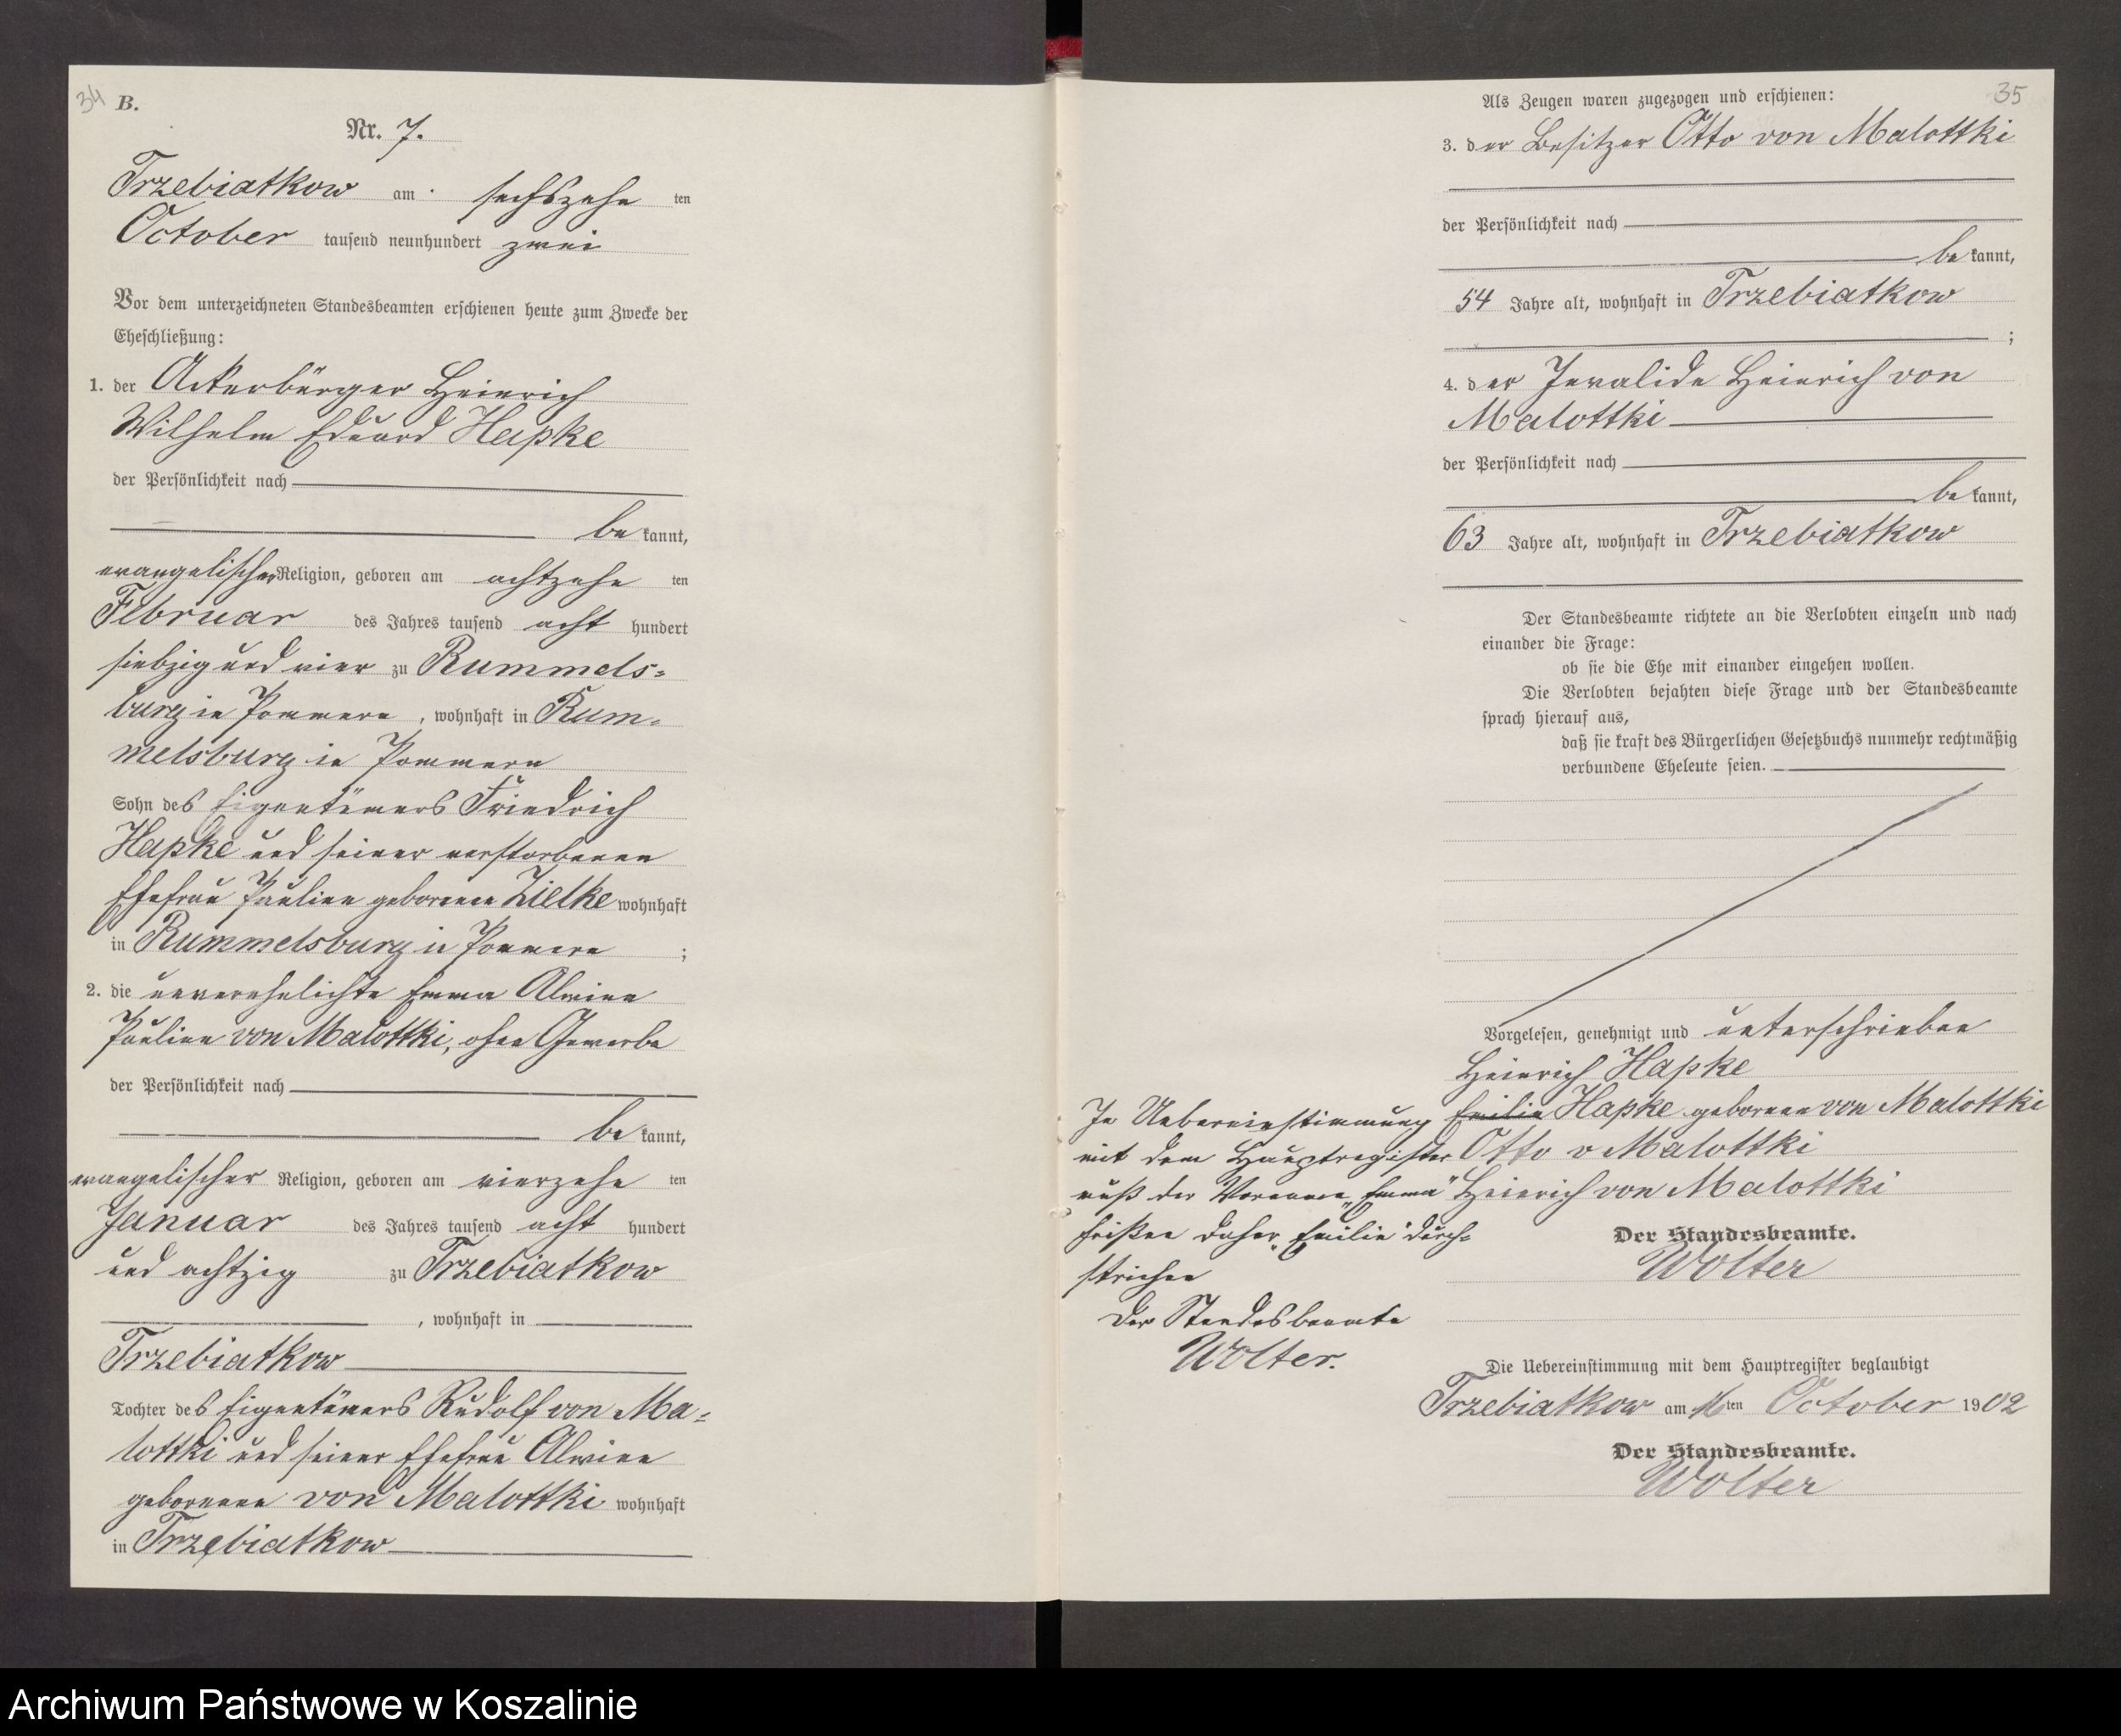 34 B.
Nr. 7.
Trzebiatkow am sechszehn ten
October tausend neunhundert zwei
Vor dem unterzeichneten Standesbeamten erschienen heute zum Zwecke der
Eheschließung:
1. der Ackerbürger Heinrich
Wilhelm Eduard Hapke
der Persönlichkeit nach
be kannt,
evangelischer Religion, geboren am achtzehn ten
Februar des Jahres tausend acht hundert
siebzig und vier zu Rummels-
burg in Pommern, wohnhaft in Rum-
melsburg in Pommern
Sohn des Eigentümers Friedrich
Hapke und seiner verstorbenen
Ehefrau Pauline geborene Zielke wohnhaft
in Rummelsburg in Pommern ;
2. die unverehelichte Emma Alwine
Pauline von Malottki, ohne Gewerbe
der Persönlichkeit nach
be kannt,
evangelischer Religion, geboren am vierzehn ten
Januar des Jahres tausend acht hundert
und achtzig zu Trzebiatkow
, wohnhaft in
Trzebiatkow
Tochter des Eigentümers Rudolf von Ma-
lottki und seiner Ehefrau Alwine
geborenen von Malottki wohnhaft
in Trzebiatkow
35
Als Zeugen waren zugezogen und erschienen:
3. der Besitzer Otto von Malottki
der Persönlichkeit nach
be kannt,
54 Jahre alt, wohnhaft in Trzebiatkow
;
4. der Invalide Heinrich von
Malottki
der Persönlichkeit nach
be kannt,
63 Jahre alt, wohnhaft in Trzebiatkow
Der Standesbeamte richtete an die Verlobten einzeln und nach
einander die Frage:
ob sie die Ehe mit einander eingehen wollen.
Die Verlobten bejahten diese Frage und der Standesbeamte
sprach hierauf aus,
daß sie kraft des Bürgerlichen Gesetzbuchs nunmehr rechtmäßig
verbundene Eheleute seien.
Vorgelesen, genehmigt und unterschrieben
Heinrich Hapke
Emilie Hapke geborene von Malottki
Otto v Malottki
Heinrich von Malottki
Der Standesbeamte.
Wolter
In Uebereinstimmung
mit dem Hauptregister
muß der Vorname „Emma"
heißen daher „Emilie" durch-
strichen
Der Standesbeamte
Wolter.
Die Uebereinstimmung mit dem Hauptregister beglaubigt
Trzebiatkow am 16 ten October 1902
Der Standesbeamte.
Wolter
Archiwum Państwowe w Koszalinie